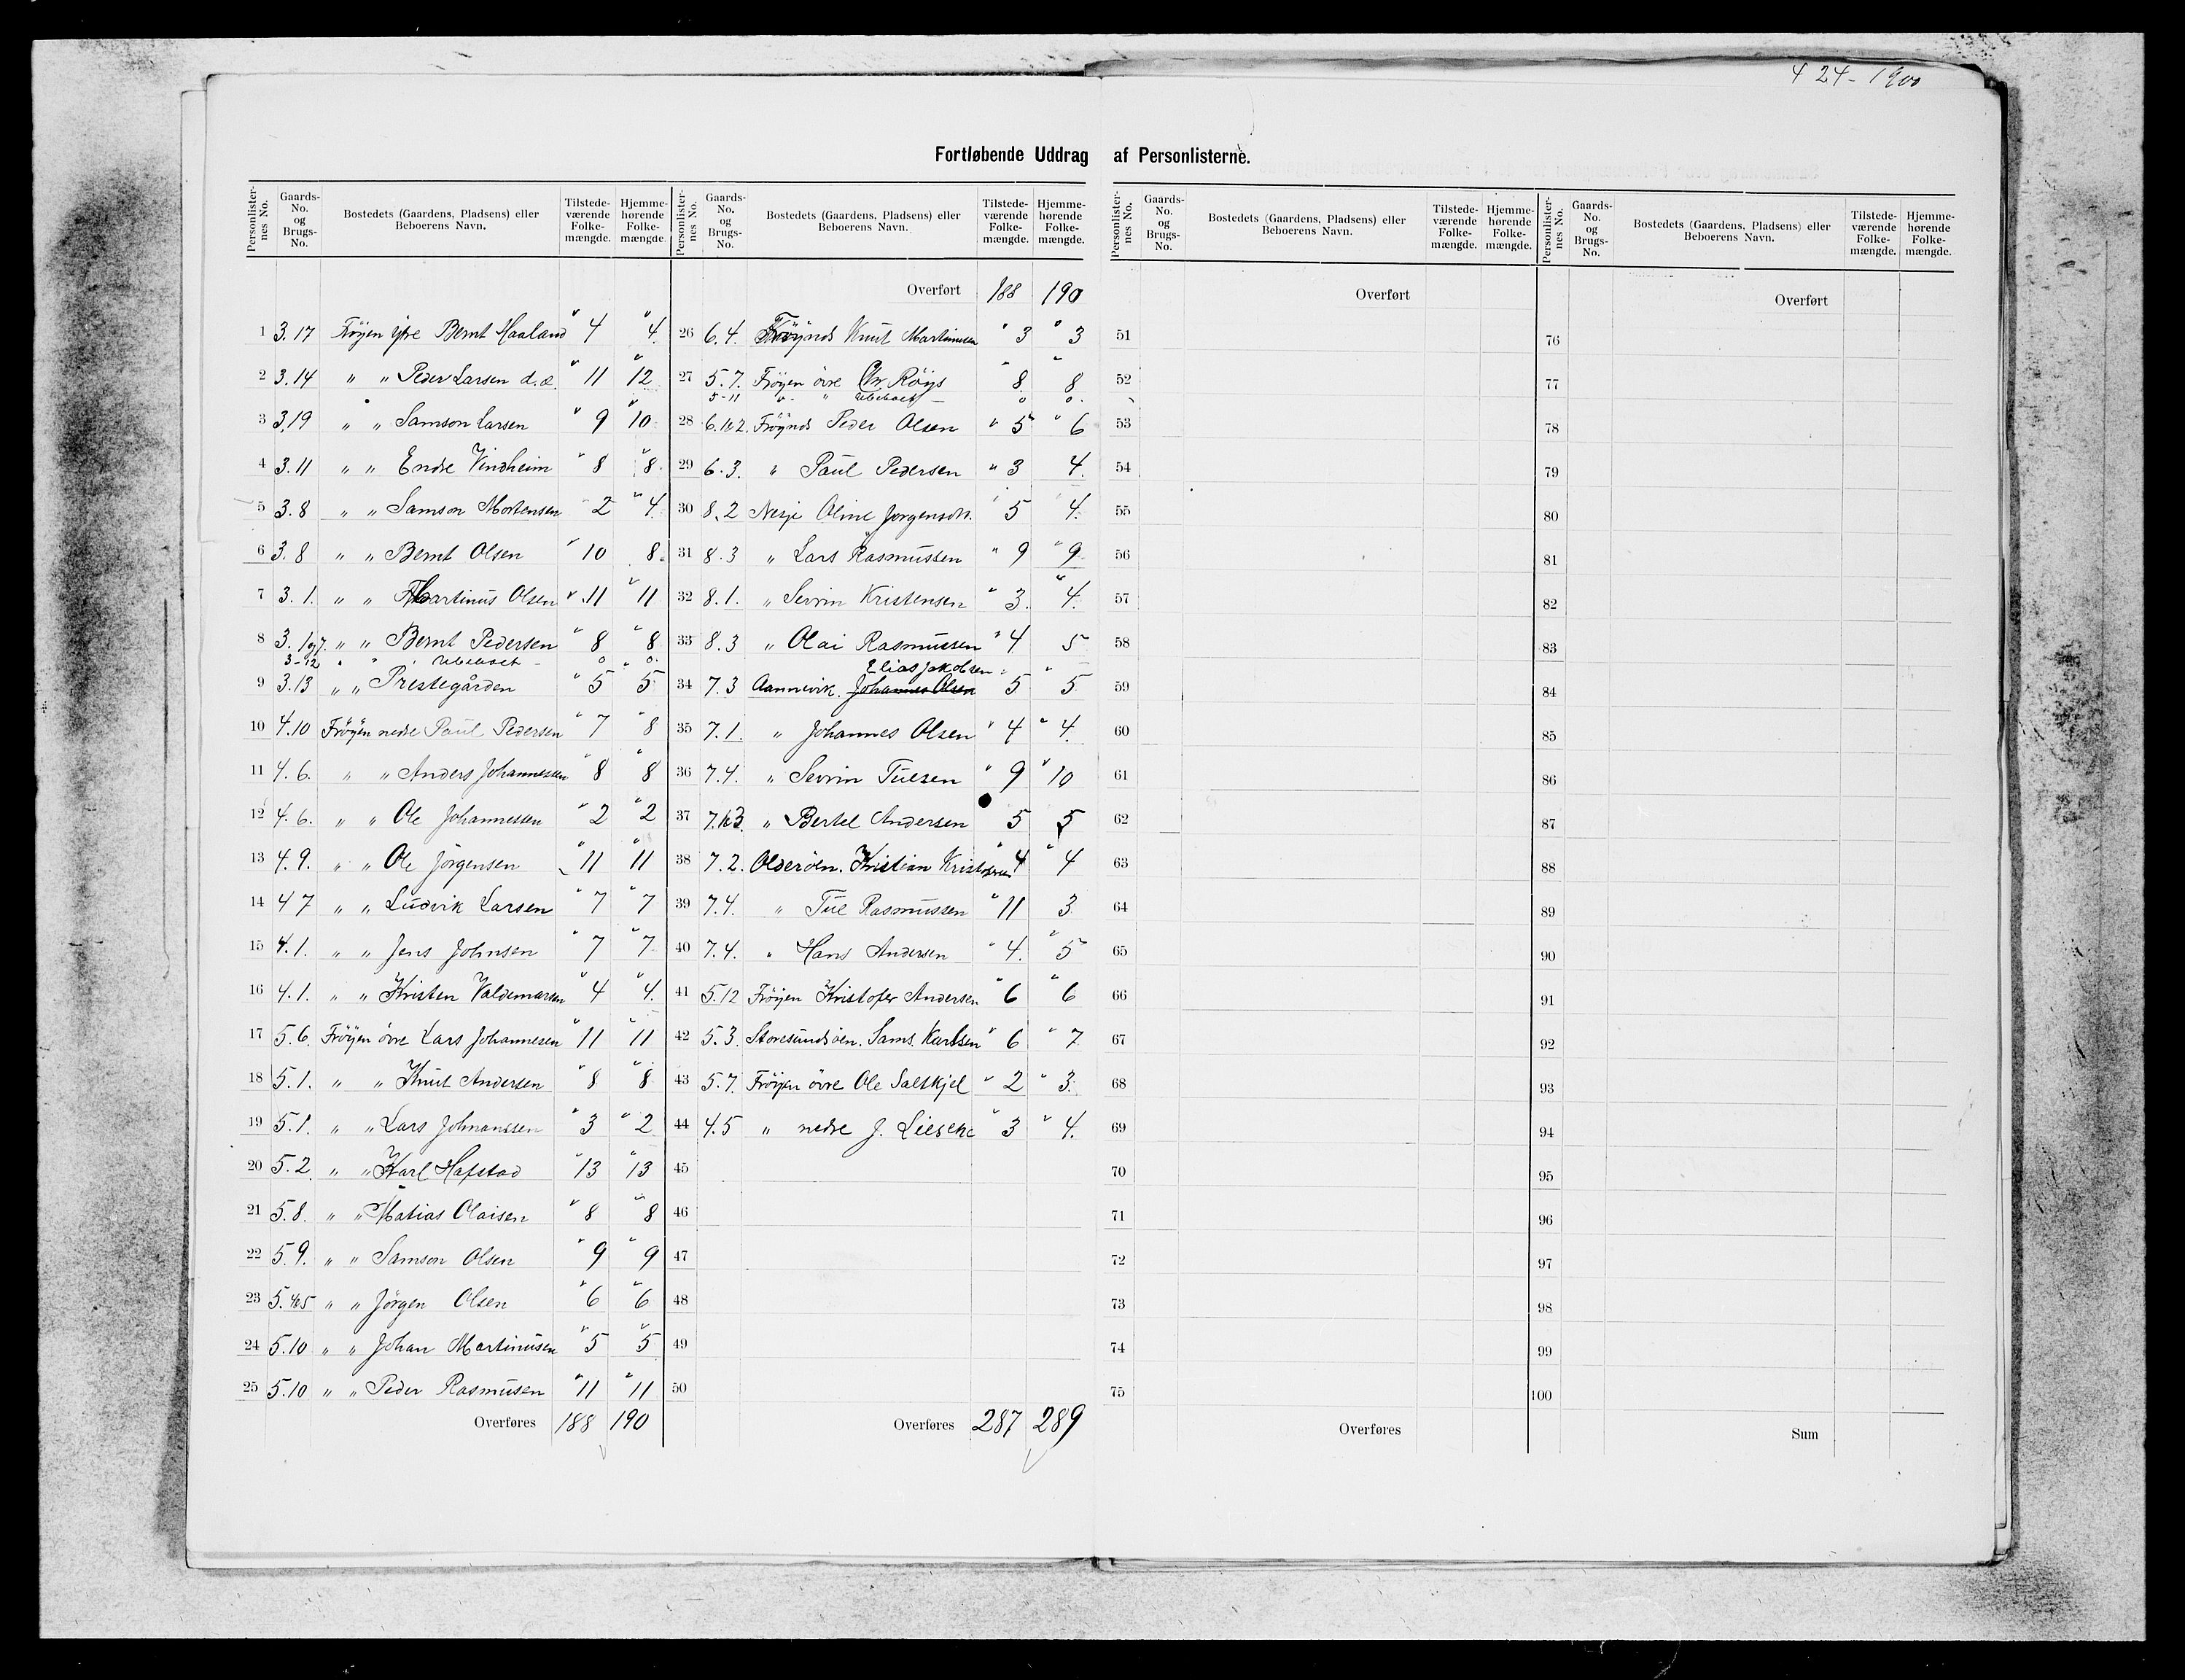 4 24 - 1900
Fortløbende Uddrag af Personlisterne.
Personlisternes No. Gaards-No. og Brugs-No. Bostedets (Gaardens, Pladsens) eller Beboerens Navn. Tilstedeværende Folkemængde. Hjemmehørende Folkemængde.
1 3.17 Frøyen Bernt Haaland 4 4.
2 3.14 " " Peder Larsen d.æ. 11 12
3 3.19 " " Samson Larsen 9 10
4 3.11 " " Endre Vindheim 8 8
5 3.8 " " Samson Mortensen 2 4.
6 3.8 " " Bernt Olsen 10 8.
7 3.1. " " Martinus Olsen 11 11
8 3.1 og 7. " " Bernt Pedersen 8 8
3-12 " " Ubeboet - 0 0.
9 3.13 " " Prestegården 5 5
10 4.10 Frøyen nedre Paul Pedersen 7 8
11 4.6. " " Anders Johannessen 8 8
12 4.6. " " Ole Johannessen 2 2
13 4.9. " " Ole Jörgensen 11 11
14 4 7 " " Ludvik Larsen 7 7
15 4.1. " " Jens Johnsen 7 7
16 4.1. " " Kristen Valdemarsen 4 4.
17 5.6. Frøyen övre Lars Johannesen 11 11
18 5.1. " " Knut Andersen 8 8
19 5.1. " " Lars Johnanssen 3 2
20 5.2. " " Karl Hafstad 13 13
21 5.8. " " Matias Olaisen 8 8
22 5.9. " " Samson Olsen 9 9
23 5.4&5 " " Jörgen Olsen 6 6
24 5.10 " " Johan Martinusen 5 5
25 5.10 " " Peder Rasmusen 11 11
Overføres 188 190
Personlisternes No. Gaards-No. og Brugs-No. Bostedets (Gaardens, Pladsens) eller Beboerens Navn. Tilstedeværende Folkemængde. Hjemmehørende Folkemængde.
Overført 188 190
26 6.4. Fröynds Knut Martinusen 3 3
27 5.7. Fröyen övre Chr. Röys 8 8
5-11 " " Ubeboet - 0 0.
28 6.1&2. Fröynds Peder Olsen 5 6
29 6.3. " Paul Pedersen 3 4.
30 8.2 Nesje Oline Jorgensdtr. 5 4.
31 8.3 " Lars Rasmussen 9 9
32 8.1. " Sevrin Kristensen 3. 4.
33 8.3 " Olai Rasmussen 4 5
Elias Jakobsen
34 7.3 Aannevik. Johannes Olsen 5 5
35 7.1. " Johannes Olsen 4 4.
36 7.4. " Sevrin Tuesen 9 10
37 7.1&3. " Bertel Andersen 5 5
38 7.2. Olderöen. Kristian Kristofersen 4 4
39 7.4. " Tue Rasmussen 11 3
40 7.4. " Hans Andersen 4. 5
41 5.12 Fröyen Kristofer Andersen 6 6
42 5.3. Storesundsöen. Sams. Karlsen 6 7
43 5.7. Fröyen övre Ole Saltskjel 2 3.
44 4.5 " nedre J. Lieseke 3 4.
45
46
47
48
49
50
Overføres 287 289
Personlisternes No. Gaards-No. og Brugs-No. Bostedets (Gaardens, Pladsens) eller Beboerens Navn. Tilstedeværende Folkemængde. Hjemmehørende Folkemængde.
Overført
51
52
53
54
55
56
57
58
59
60
61
62
63
64
65
66
67
68
69
70
71
72
73
74
75
Overføres
Personlisternes No. Gaards-No. og Brugs-No. Bostedets (Gaardens, Pladsens) eller Beboerens Navn. Tilstedeværende Folkemængde. Hjemmehørende Folkemængde.
Overført
76
77
78
79
80
81
82
83
84
85
86
87
88
89
90
91
92
93
94
95
96
97
98
99
100
Sum